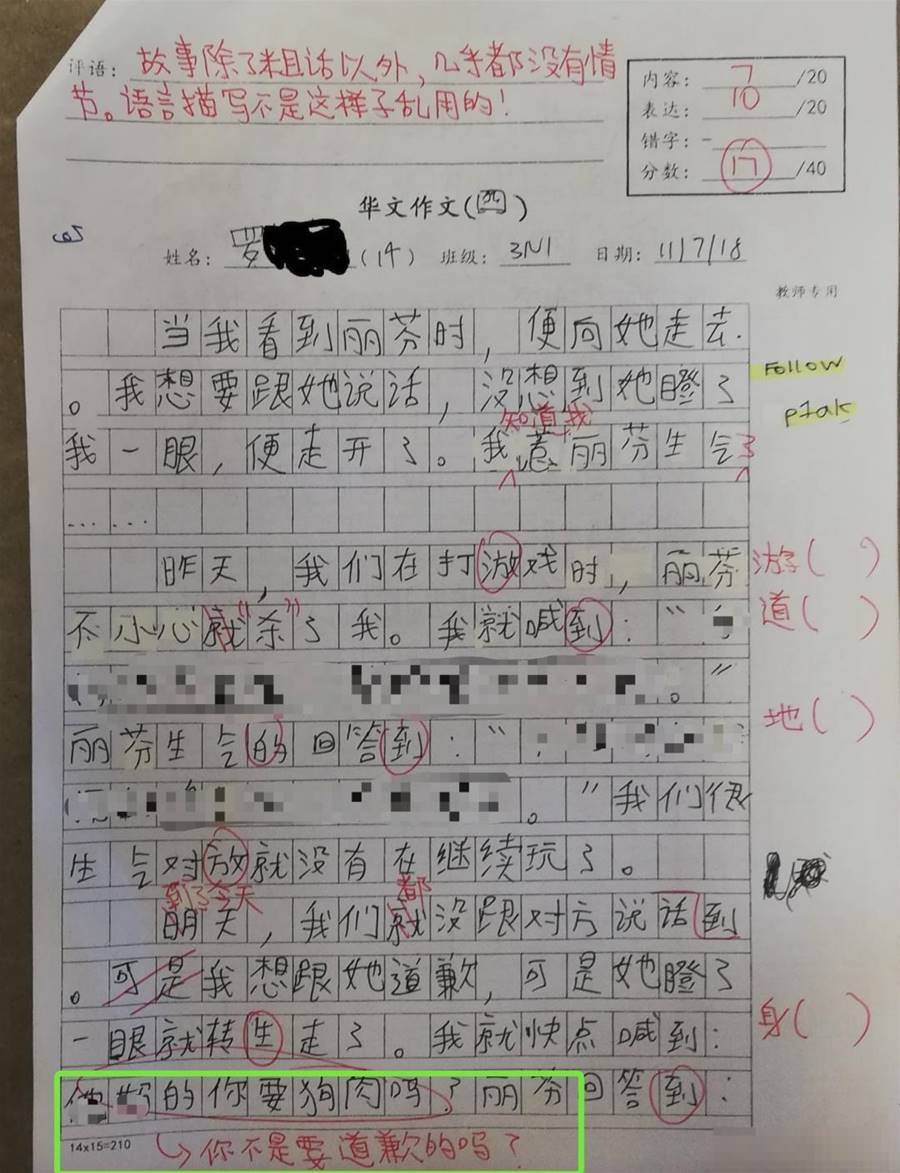 评语: 故事除了粗话以外，几乎都没有情
节。语言描写不是这样子乱用的！
内容: 7 /20
表达: 10 /20
错字: -
分数: 17 /40
华文作文(四)
姓名: 罗 (14) 班级: 3N1 日期: 11/7/18
教师专用
当我看到丽芬时，便向她走去
。我想要跟她说话，没想到她瞪了
Follow
知道我
我一眼，便走开了。我惹丽芬生气了
……
昨天，我们在打游戏时，丽芬
游( )
不小心就"杀"了我。我就喊到："
道( )
。"
地( )
丽芬生气的回答到："
。"我们很
生气对放就没有在继续玩了。
到了今天 都
明天，我们就没跟对方说话到
。可是我想跟她道歉，可是她瞪了
一眼就转生走了。我就快点喊到：
身( )
的你要狗肉吗？丽芬回答到：
14x15=210
你不是要道歉的吗？